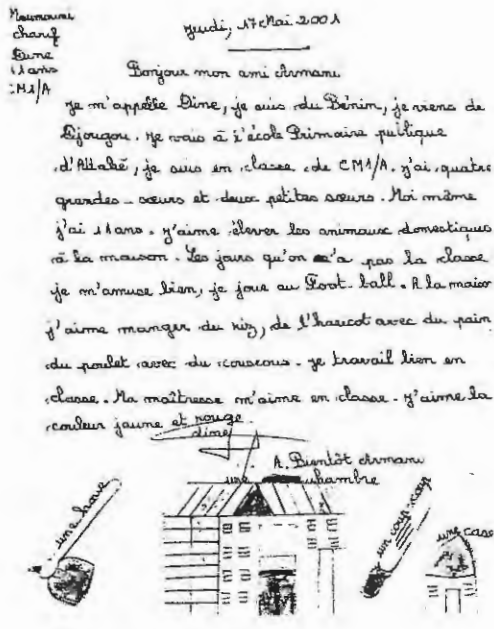 Moumouni
charif
Dine
11 ans
CM1/A
Jeudi, 17 Mai 2001
Bonjour mon ami Armani
Je m'appelle Dine, je suis du Bénin, je viens de
Djougou. Je vais à l'école Primaire publique
d'Attaké, je suis en classe de CM1/A. j'ai quatre
grandes-sœurs et deux petites sœurs. Moi même
j'ai 11 ans. J'aime élever les animaux domestiques
à la maison. Les jours qu'on n'a pas la classe
je m'amuse bien, je joue au Foot-ball. A la maison
j'aime manger du riz, de l'haricot avec du pain
du poulet avec du couscous. Je travail bien en
classe. Ma maîtresse m'aime en classe. J'aime la
couleur jaune et rouge
dine
A. Bientôt Armani
une chambre
une houe
un coup-coup
une case